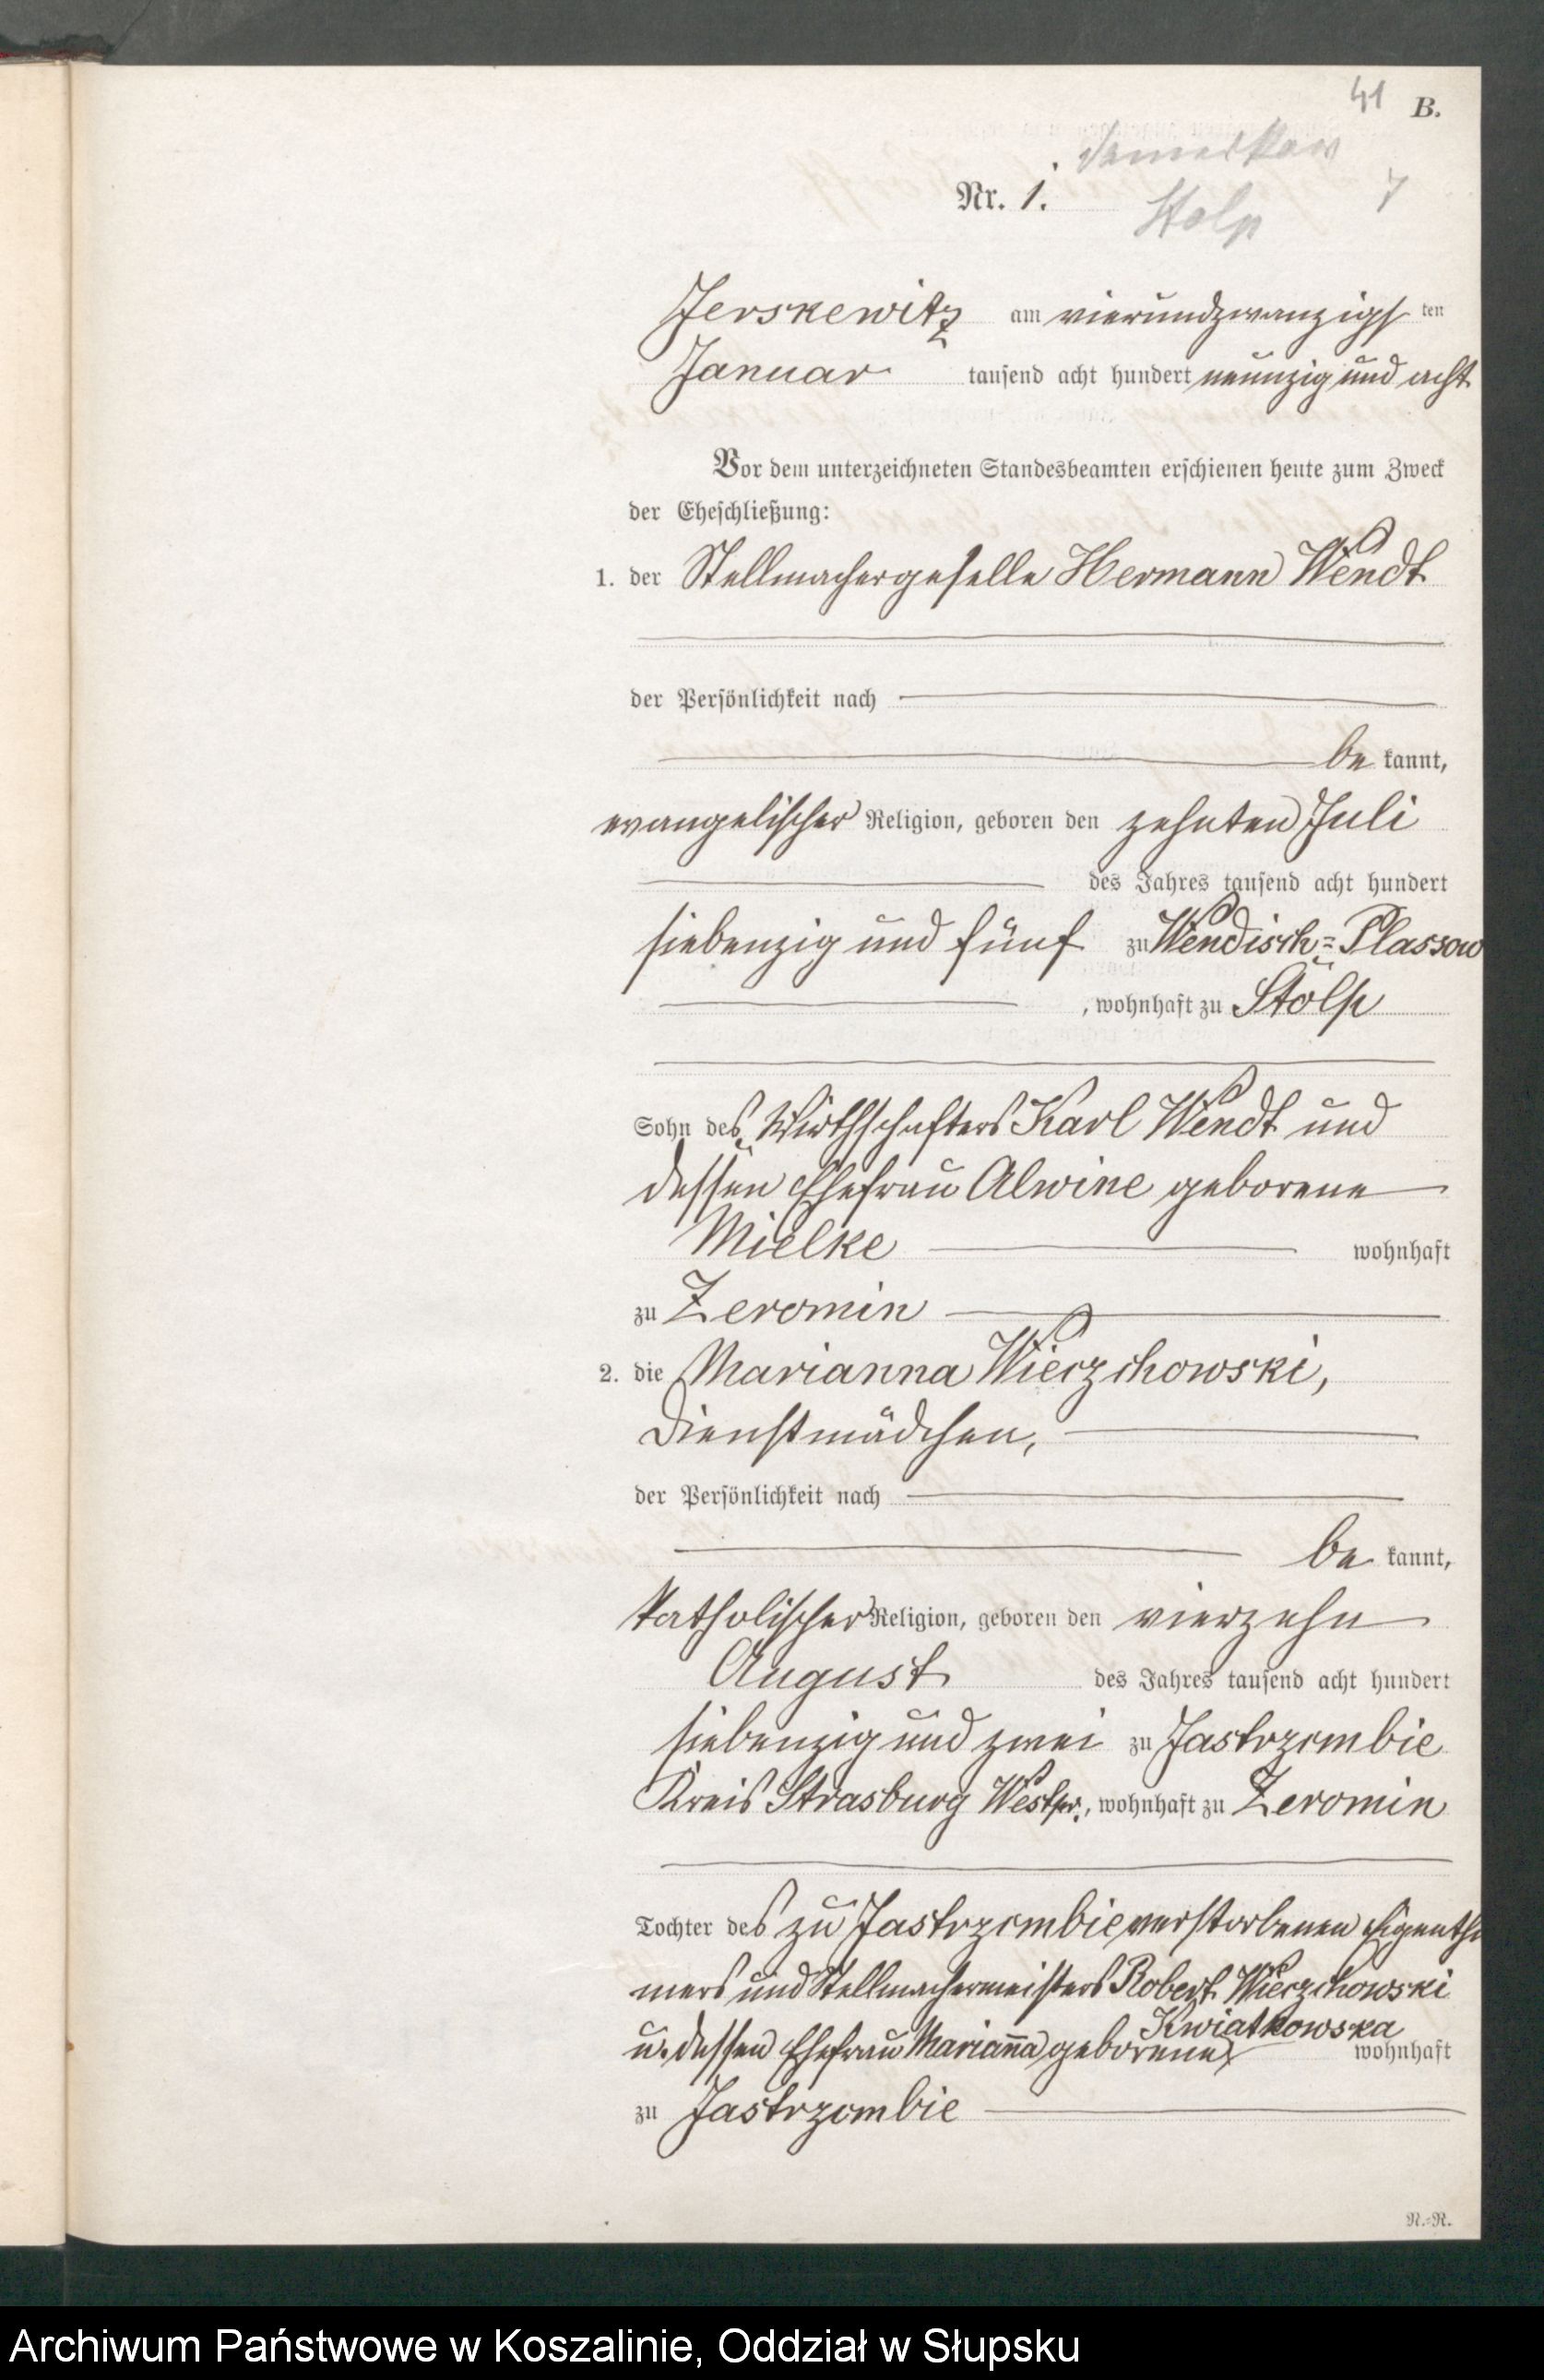 41 B.
Nr. 1.
Stolp 7
Jerskewitz am vierundzwanzigs ten
Januar tausend acht hundert neunzig und acht
Vor dem unterzeichneten Standesbeamten erschienen heute zum Zweck
der Eheschließung:
1. der Stellmachergeselle Hermann Wendt
der Persönlichkeit nach
be kannt,
evangelischer Religion, geboren den zehnten Juli
des Jahres tausend acht hundert
siebenzig und fünf zu Wendisch-Plassow
, wohnhaft zu Stolp
Sohn des Wirthschafters Karl Wendt und
dessen Ehefrau Alwine geborene
Mielke wohnhaft
zu Zeromin
2. die Marianna Wieczchowski,
Dienstmädchen,
der Persönlichkeit nach
be kannt,
katholischer Religion, geboren den vierzehn
August des Jahres tausend acht hundert
siebenzig und zwei zu Jastrzembie
Kreis Strasburg Westpr., wohnhaft zu Zeromin
Tochter des zu Jastrzembie verstorbenen Eigenthü
mers und Stellmachermeisters Robert Wieczchowski
Kwiatkowska
u. dessen Ehefrau Marianna geborene wohnhaft
zu Jastrzembie
R.-R.
Archiwum Państwowe w Koszalinie, Oddział w Słupsku